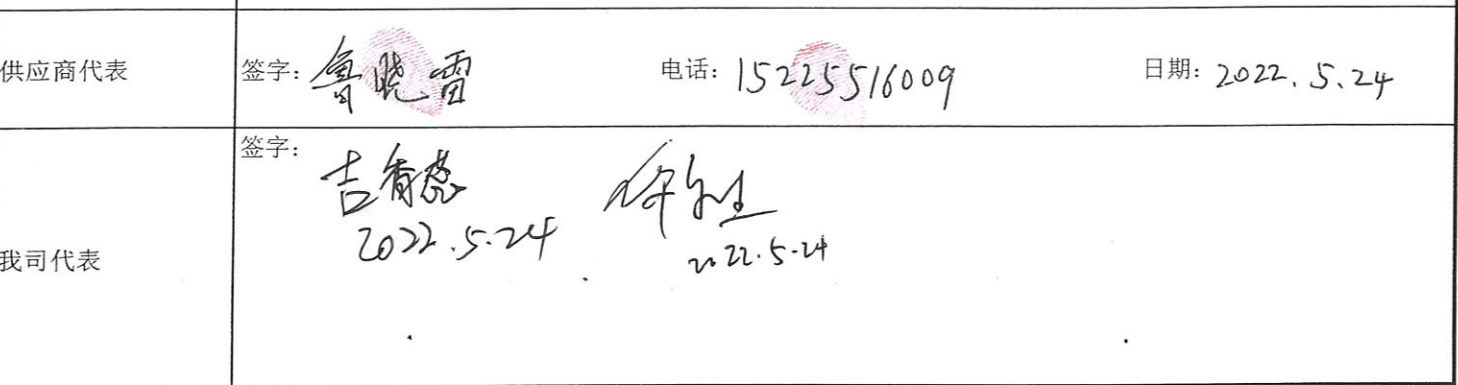 供应商代表 签字：鲁晓雷 电话：15225516009 日期：2022.5.24
签字：
吉香蕊
2022.5.24 2022.5.24
我司代表